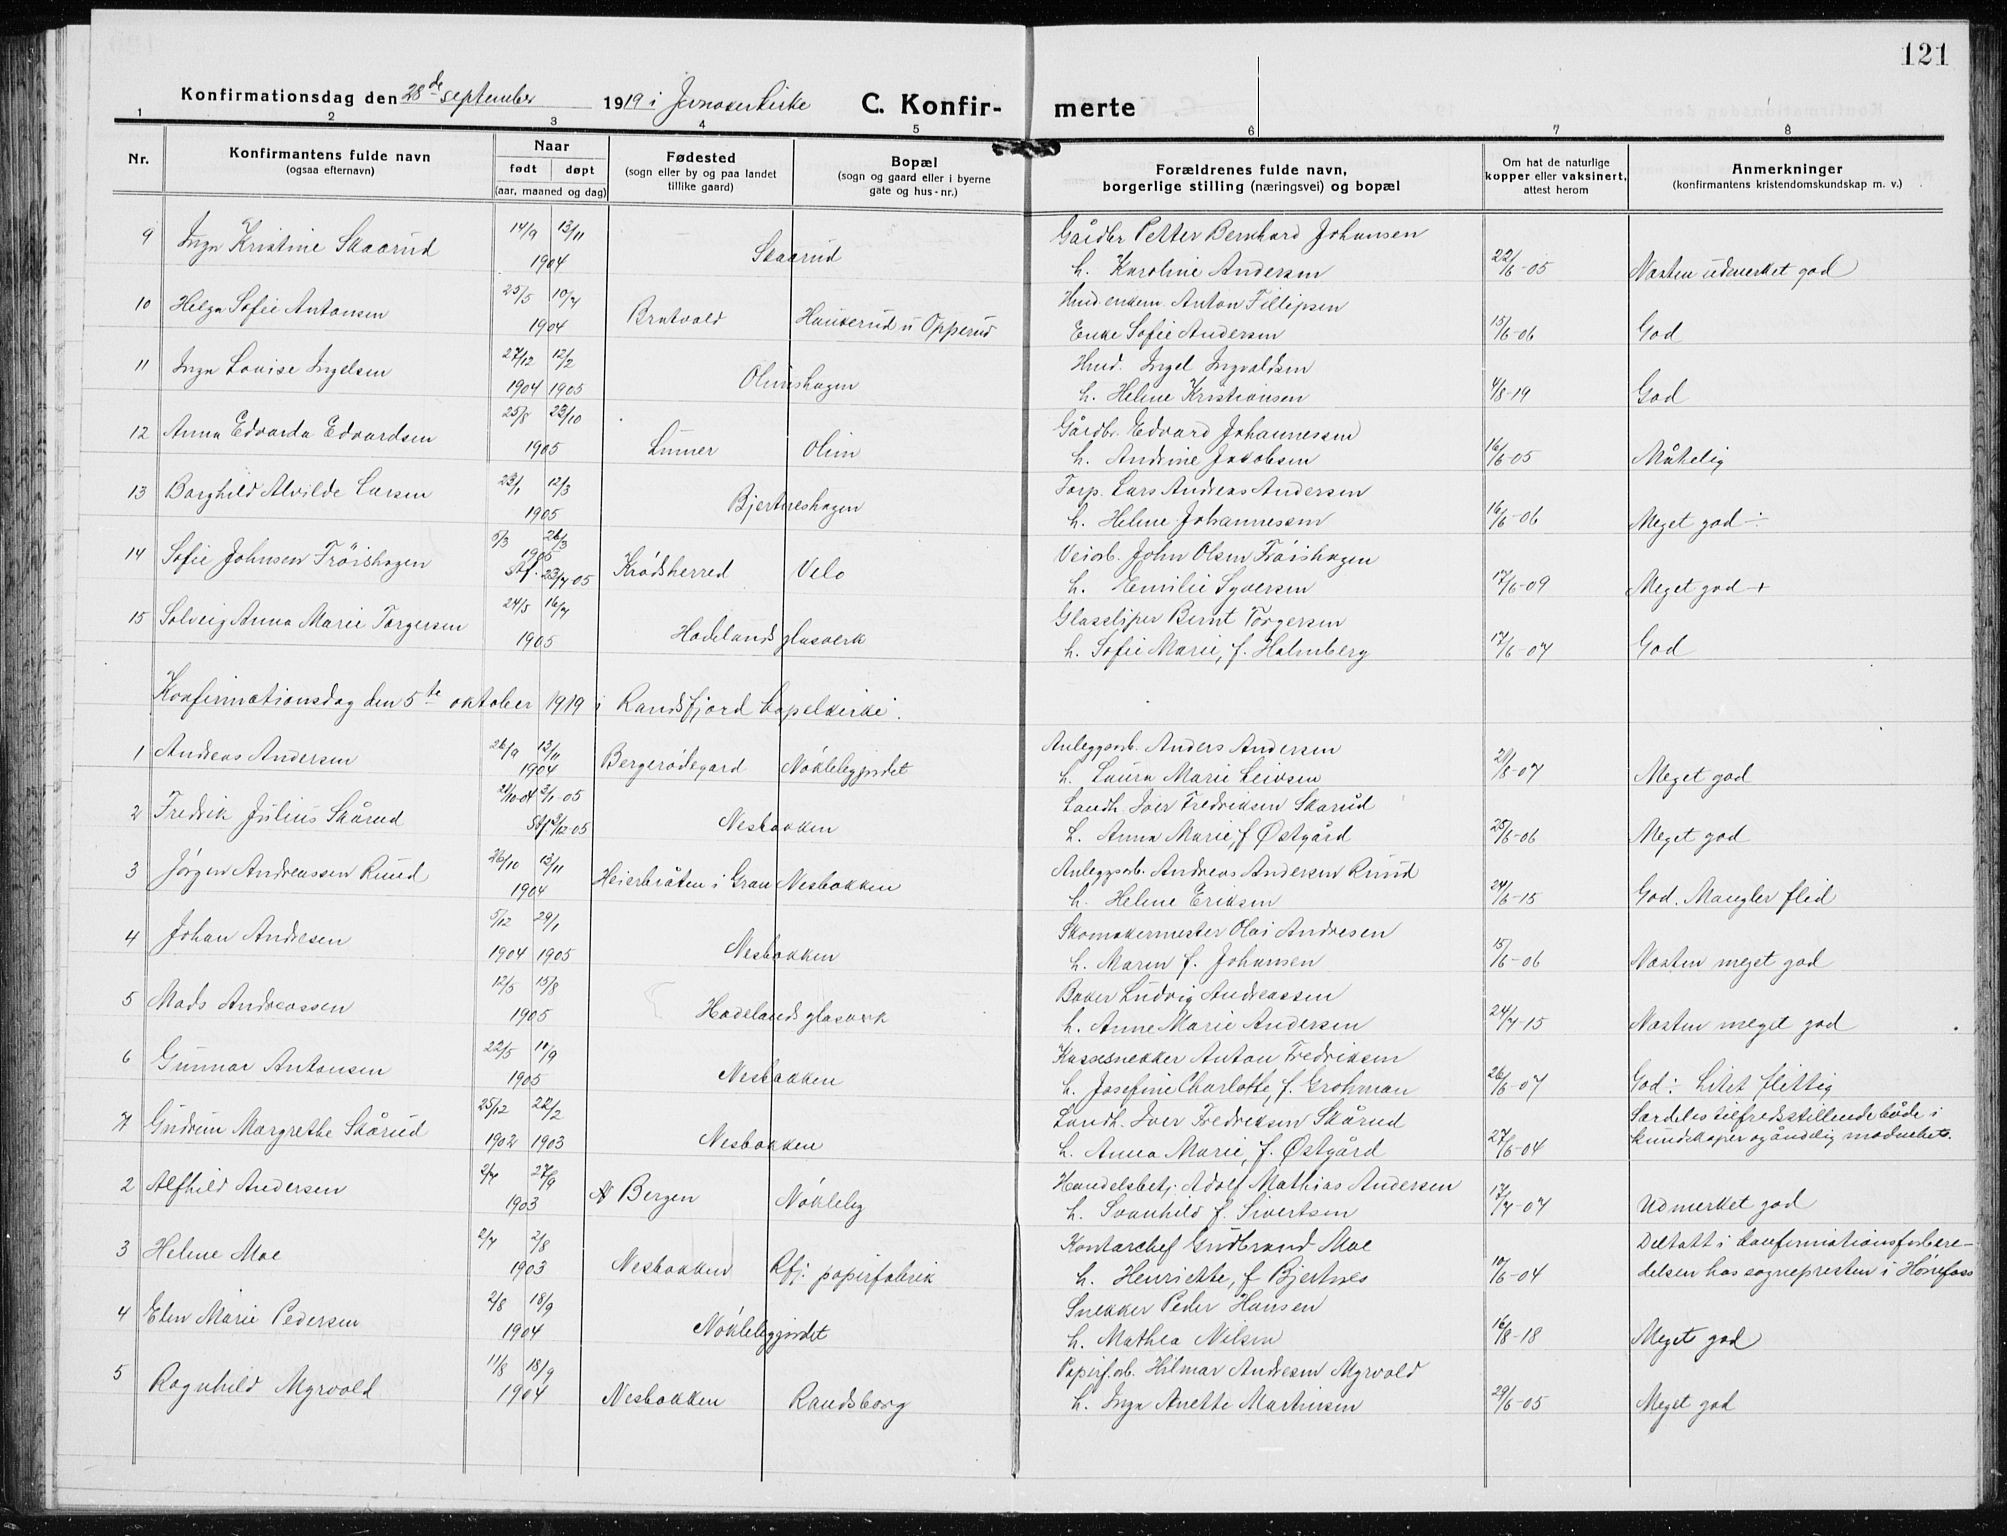 121
Konfirmationsdag den 28de september 1919 i Jevnaker kirke C. Konfir- merte
1 2 3 4 5 6 7 8
Nr. Konfirmantens fulde navn (ogsaa efternavn) Naar født døpt (aar, maaned og dag) Fødested (sogn eller by og paa landet tillike gaard) Bopæl (sogn og gaard eller i byerne gate og hus-nr.) Forældrenes fulde navn, borgerlige stilling (næringsvei) og bopæl Om hat de naturlige kopper eller vaksinert, attest herom Anmerkninger (konfirmantens kristendomskundskap m. v.)
9 Inga Kristine Skaarud 14/9 13/11 1904 Skaarud Gårdbr Petter Bernhard Johansen
h. Karoline Andersen 22/6-05 Næsten udmerket god
10 Helga Sofie Antonsen 25/5 10/7 1904 Bratvold Haukerud u Opperud Husd enkem. Anton Fillipsen
Enke Sofie Andersen 15/6-06 God
11 Inga Lovise Ingelsen 27/12 12/2 1904 1905 Olimshagen Husd. Ingel Ingvaldsen
h. Helene Kristiansen 4/8-19 God
12 Anna Edvarda Edvardsen 25/8 23/10 1905 Lunner Olim Gårdbr. Edvard Johannessen
h. Andrine Jakobsen 16/6-05 Måtelig
13 Borghild Alvilde Larsen 23/1 12/3 1905 Bjertneshagen Torp. Lars Andreas Andersen
h. Helene Johannessen 16/6-06 Meget god ÷
14 Sofie Johnsen Frøishagen 5/3 26/3 1905 St.f. 23/7 05 Krødsherred Velo Veiarb. John Olsen Frøishagen
h. Emilie Syversen 17/6-09 Meget god +
15 Solveig Anna Marie Torgersen 24/5 16/7 1905 Hadelands glasverk Glassliper Bernt Torgersen
h. Sofie Marie, f. Holmberg 17/6-07 God
Konfirmationsdag den 5te oktober 1919 i Randsfjord kapelkirke.
1 Andreas Andersen 26/9 13/11 1904 Bergerødegard Nøklebygjordet Anleggsarb. Anders Andersen
h. Laura Marie Leivsen 21/8-07 Meget god
2 Fredrik Julius Skårud 3/1 05 St.f. 3/12 05 Nesbakken Landh. Iver Fredriksen Skarud
h. Anna Marie, f Østgård 25/6-06 Meget god
3 Jørgen Andreassen Ruud 26/10 13/11 1904 Heierbråten i Gran Nesbakken Anleggsarb. Andreas Andersen Ruud
h. Helene Eriksen 24/6-15 God. Mangler flid
4 Johan Andresen 5/12 29/1 1904 1905 Nesbakken Skomakermester Olai Andresen
h. Maren f. Johansen 15/6-06 Næsten meget god
5 Mads Andreassen 12/5 15/8 1905 Hadelands glasverk Baker Ludvig Andreassen
h. Anne Marie Andersen 24/7-15 Næsten meget god
6 Gunnar Antonsen 22/5 10/9 1905 Nesbakken Kassesnekker Anton Fredriksen
h. Josefine Charlotte, f. Grohman 26/6-07 God ÷ Litet flittig
7 Gudrun Margrethe Skårud 25/12 22/2 1902 1903 Nesbakken Landh. Iver Fredriksen Skårud
h. Anna Marie, f. Østgård 27/6-04 Særdeles tilfredsstillende både i kundskaper og åndelig modenhet.
2 Alfhild Andersen 2/7 27/9 1903 Bergen Nøkleby Handelsbetj. Adolf Mathias Andersen
h. Svanhild f. Sivertsen 17/7-07 Udmerket god
3 Helene Moe 2/7 2/8 1903 Nesbakken Rfj. papirfabrik Kontorchef Gudbrand Moe
h. Henriette, f Bjertnes 10/6-04 Deltatt i konfirmationsforberedelsen hos sognepresten i Hønefoss
4 Elen Marie Pedersen 2/8 18/9 1904 Nøklebygjordet Snekker Peder Hansen
h. Mathea Nilsen 16/8-18 Meget god
5 Ragnhild Myrvold 11/8 18/9 1904 Nesbakken Randsborg Papirf.arb. Hilmar Andresen Myrvold
h. Inga Anette Martinsen 29/6-05 Meget god